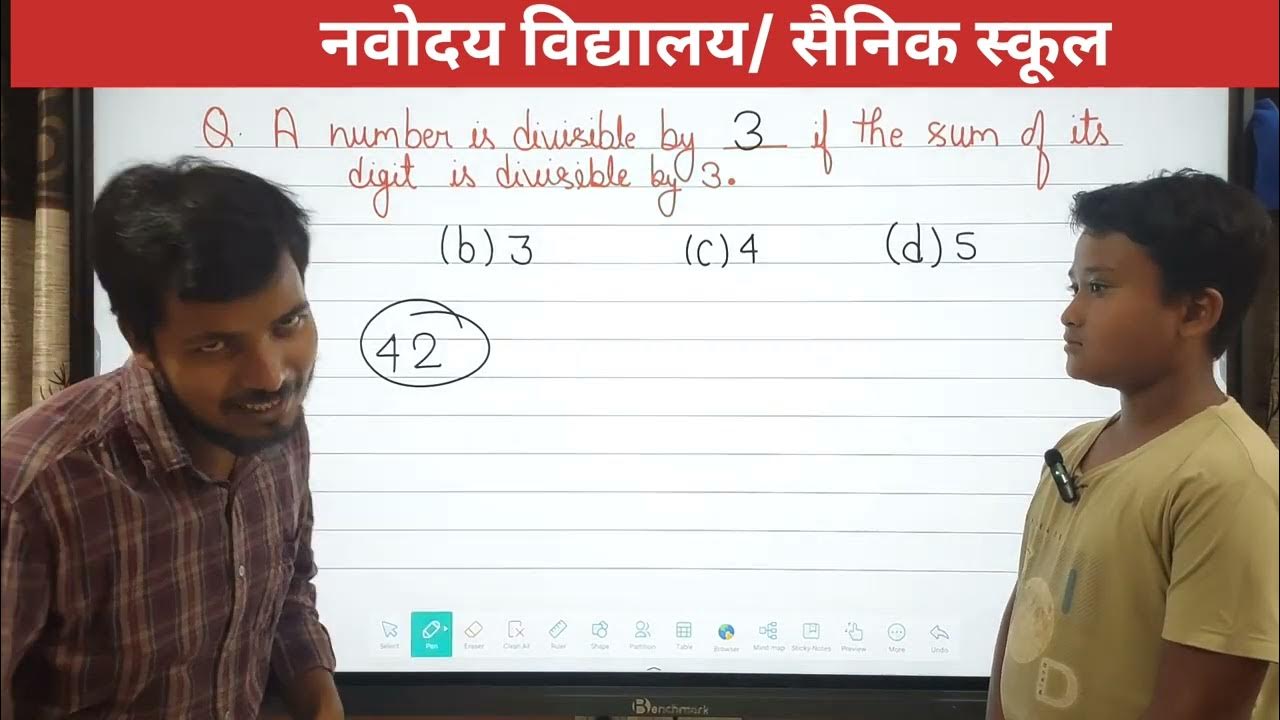 नवोदय विद्यालय/ सैनिक स्कूल
Q. A number is divisible by 3 if the sum of its
digit is divisible by 3.
(b) 3 (c) 4 (d) 5
42
Select Pen Eraser Clean All Ruler Shape Partition Table Browser Mind map Sticky Notes Preview More Undo
Benchmark